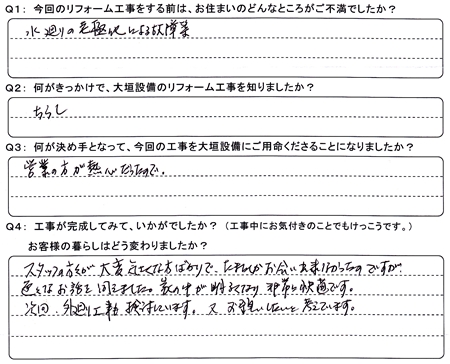 Q1: 今回のリフォーム工事をする前は、お住まいのどんなところがご不満でしたか？
水廻りの老朽化による故障等
Q2: 何がきっかけで、大垣設備のリフォーム工事を知りましたか？
ちらし
Q3: 何が決め手となって、今回の工事を大垣設備にご用命くださることになりましたか？
営業の方が熱心だったので。
Q4: 工事が完成してみて、いかがでしたか？（工事中にお気付きのことでもけっこうです。）
お客様の暮らしはどう変わりましたか？
スタッフの方々が大変気さくな方ばかりで、お会い出来なかったのですが
色々なお話を聞えました。家の中が明るくなり非常に快適です。
次回、外廻り工事検討しています。又お願いしたいと考えています。